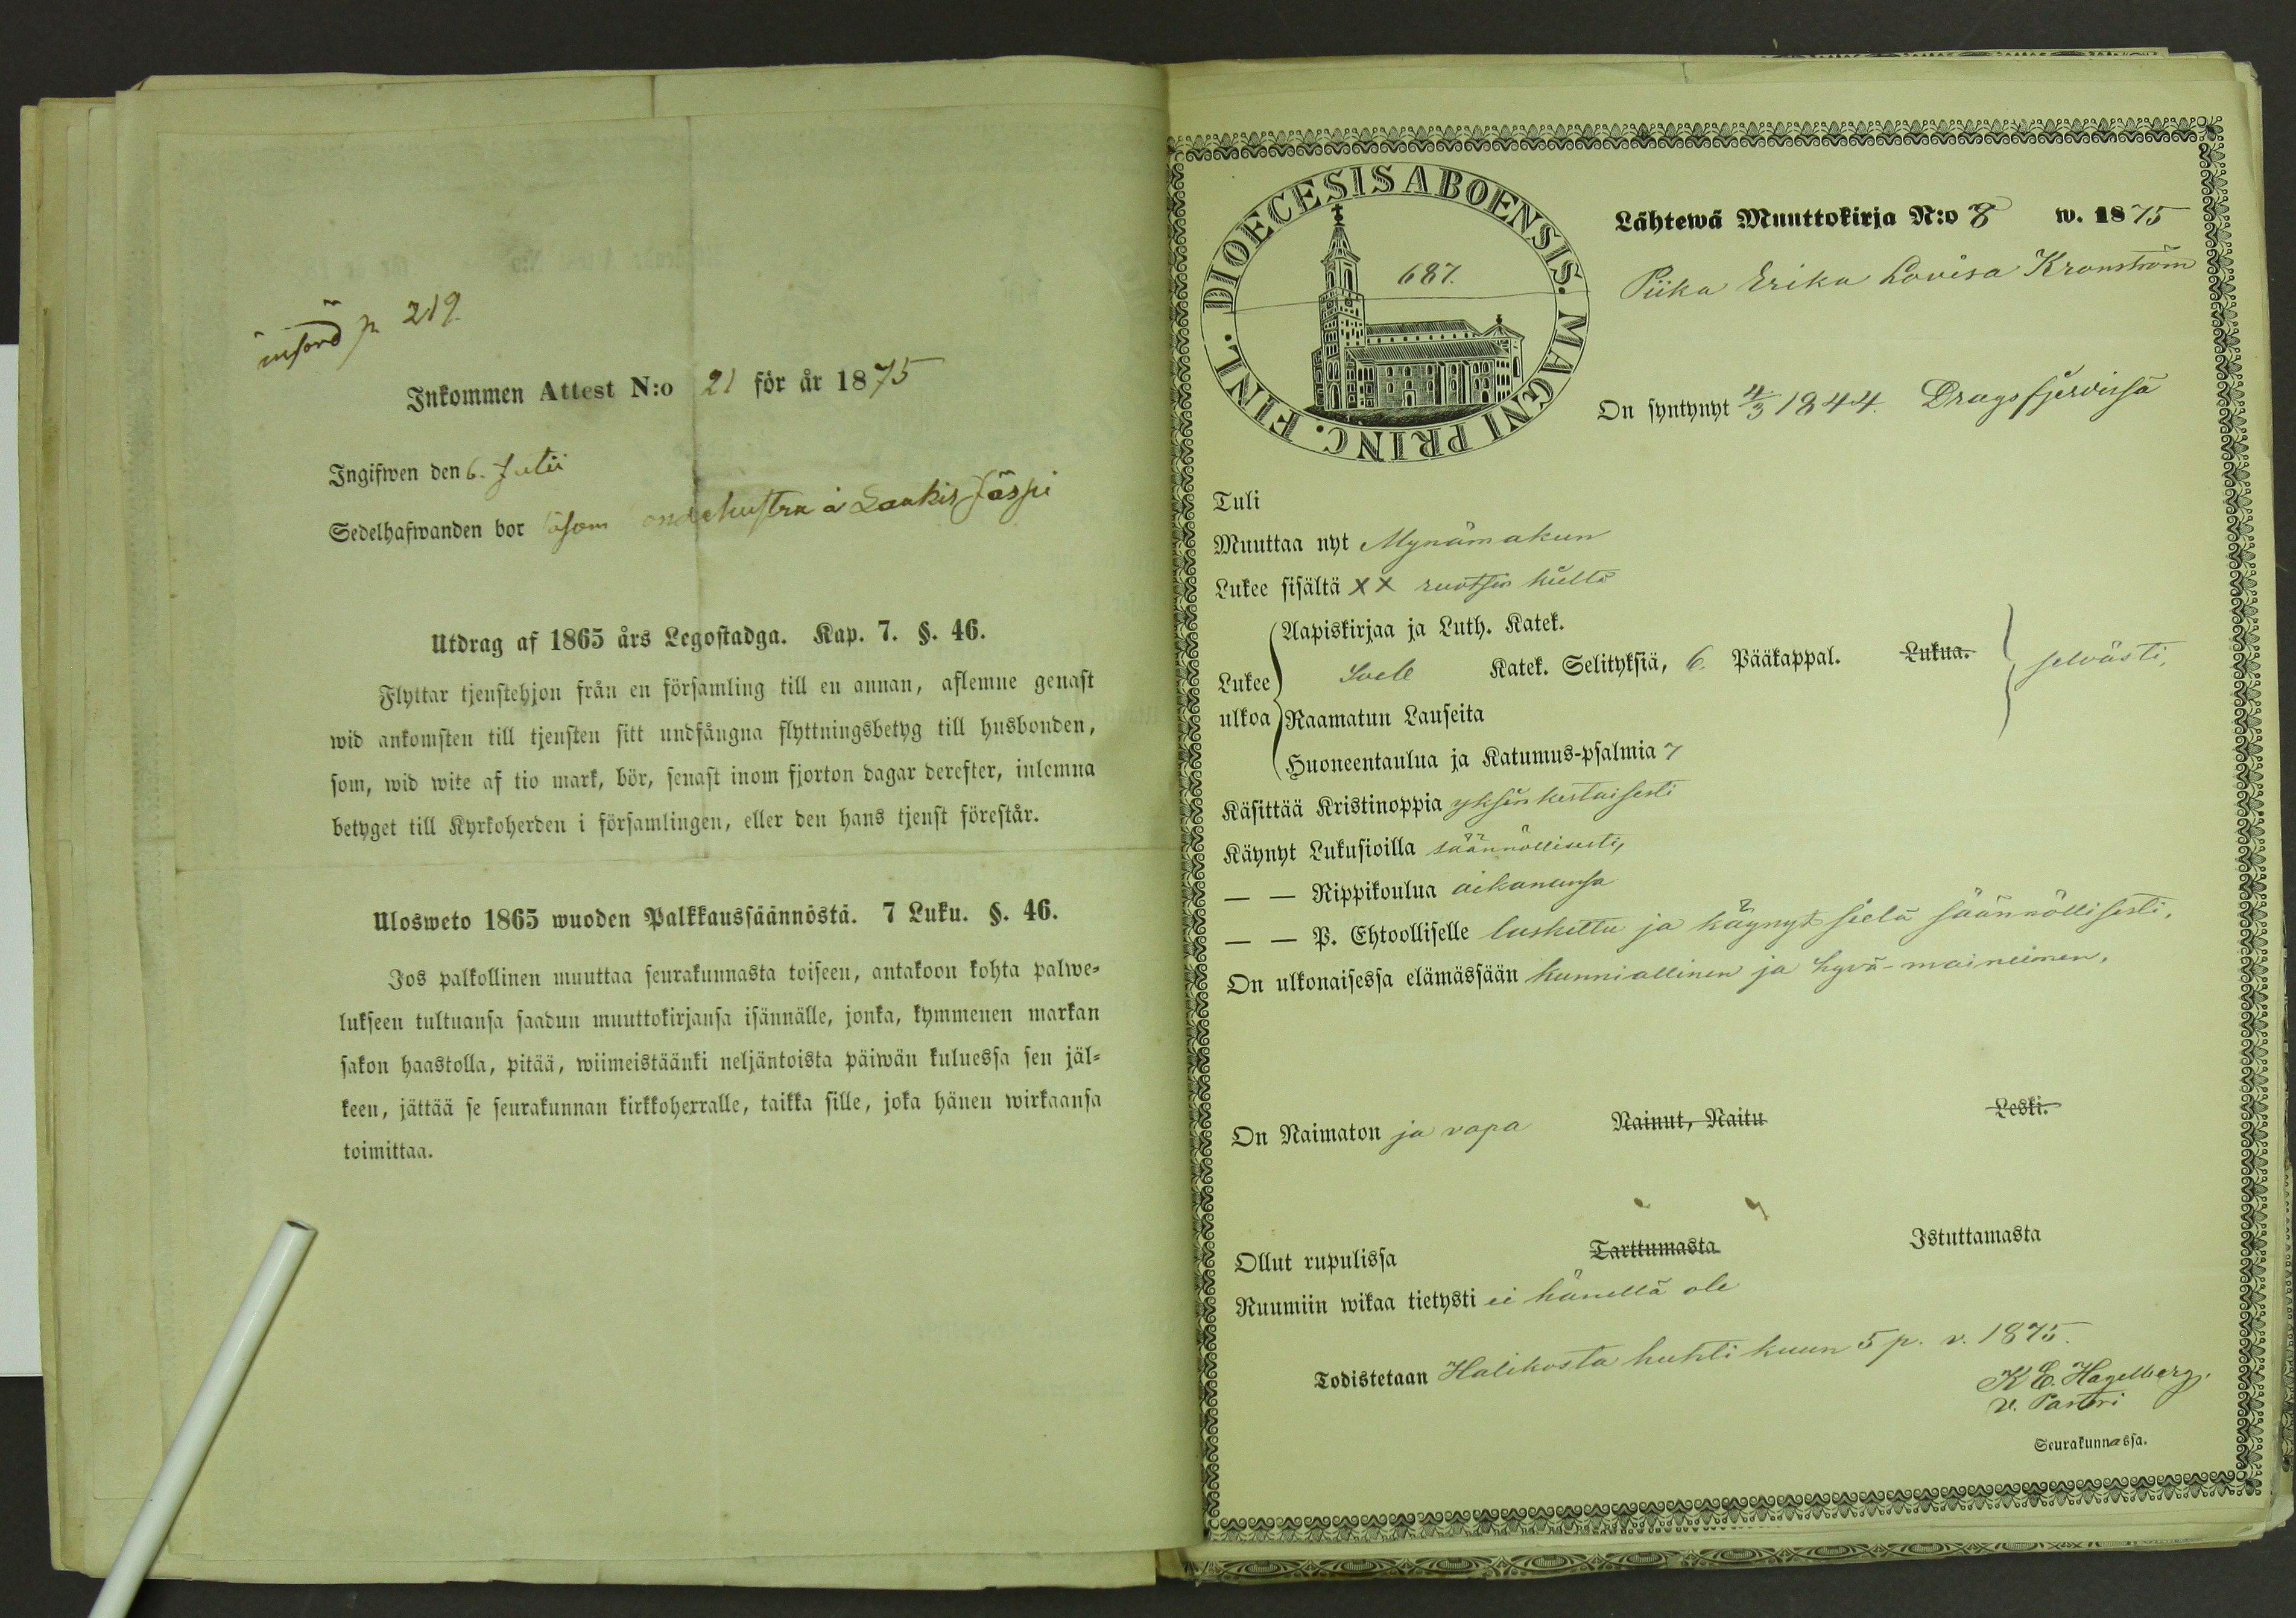 införd p 219.
Inkommen Attest N:o 21 för år 1875
Ingifwen den 6. Julii
Sedelhafwanden bor såsom bondehustru å Laukis Jäspi
Utdrag af 1865 års Legostadga. Kap. 7. §. 46.
Flyttar tjenstehjon från en församling till en annan, aflemne genast
wid ankomsten till tjensten sitt undfångna flyttningsbetyg till husbonden,
som, wid wite af tio mark, bör, senast inom fjorton dagar derefter, inlemna
betyget till Kyrkoherden i församlingen, eller den hans tjenst förestår.
Ulosweto 1865 wuoden Palkkaussäännöstä. 7 Luku. §. 46.
Jos palkollinen muuttaa seurakunnasta toiseen, antakoon kohta palwe-
lukseen tultuansa saadun muuttokirjansa isännälle, jonka, kymmenen markan
sakon haastolla, pitää, wiimeistäänki neljäntoista päiwän kuluessa sen jäl-
keen, jättää se seurakunnan kirkkoherralle, taikka sille, joka hänen wirkaansa
toimittaa.
DIOECESIS ABOENSIS. MAGNI PRINC. FINL.
687.
Lähtewä Muuttokirja N:o 8 w. 1875
Piika Erika Lovisa Kronström
On syntynyt 4/3 1844. Dragsfjerdissä
Tuli
Muuttaa nyt Mynämakuun
Lukee sisältä XX ruotsin kieltä
Lukee ulkoa
Aapiskirjaa ja Luth. Katek.
Sveb Katek. Selityksiä, 6. Pääkappal. Lukua. selvästi,
Raamatun Lauseita
Huoneentaulua ja Katumus-psalmia 7
Käsittää Kristinoppia yksinkertaisesti
Käynyt Lukusioilla säännöllisesti,
— — Rippikoulua aikanansa
— — P. Ehtoolliselle laskettu ja käynyt sielä säännöllisesti,
On ulkonaisessa elämässään kunniallinen ja hyvä-maineinen,
On Naimaton ja vapa Nainut, Naitu Leski.
Ollut rupulissa Tarttumasta Istuttamasta
Ruumiin wikaa tietysti ei hänellä ole
Todistetaan Halikosta huhtikuun 5 p. v. 1875.
K E. Hagelberg.
v. Pastori
Seurakunnassa.